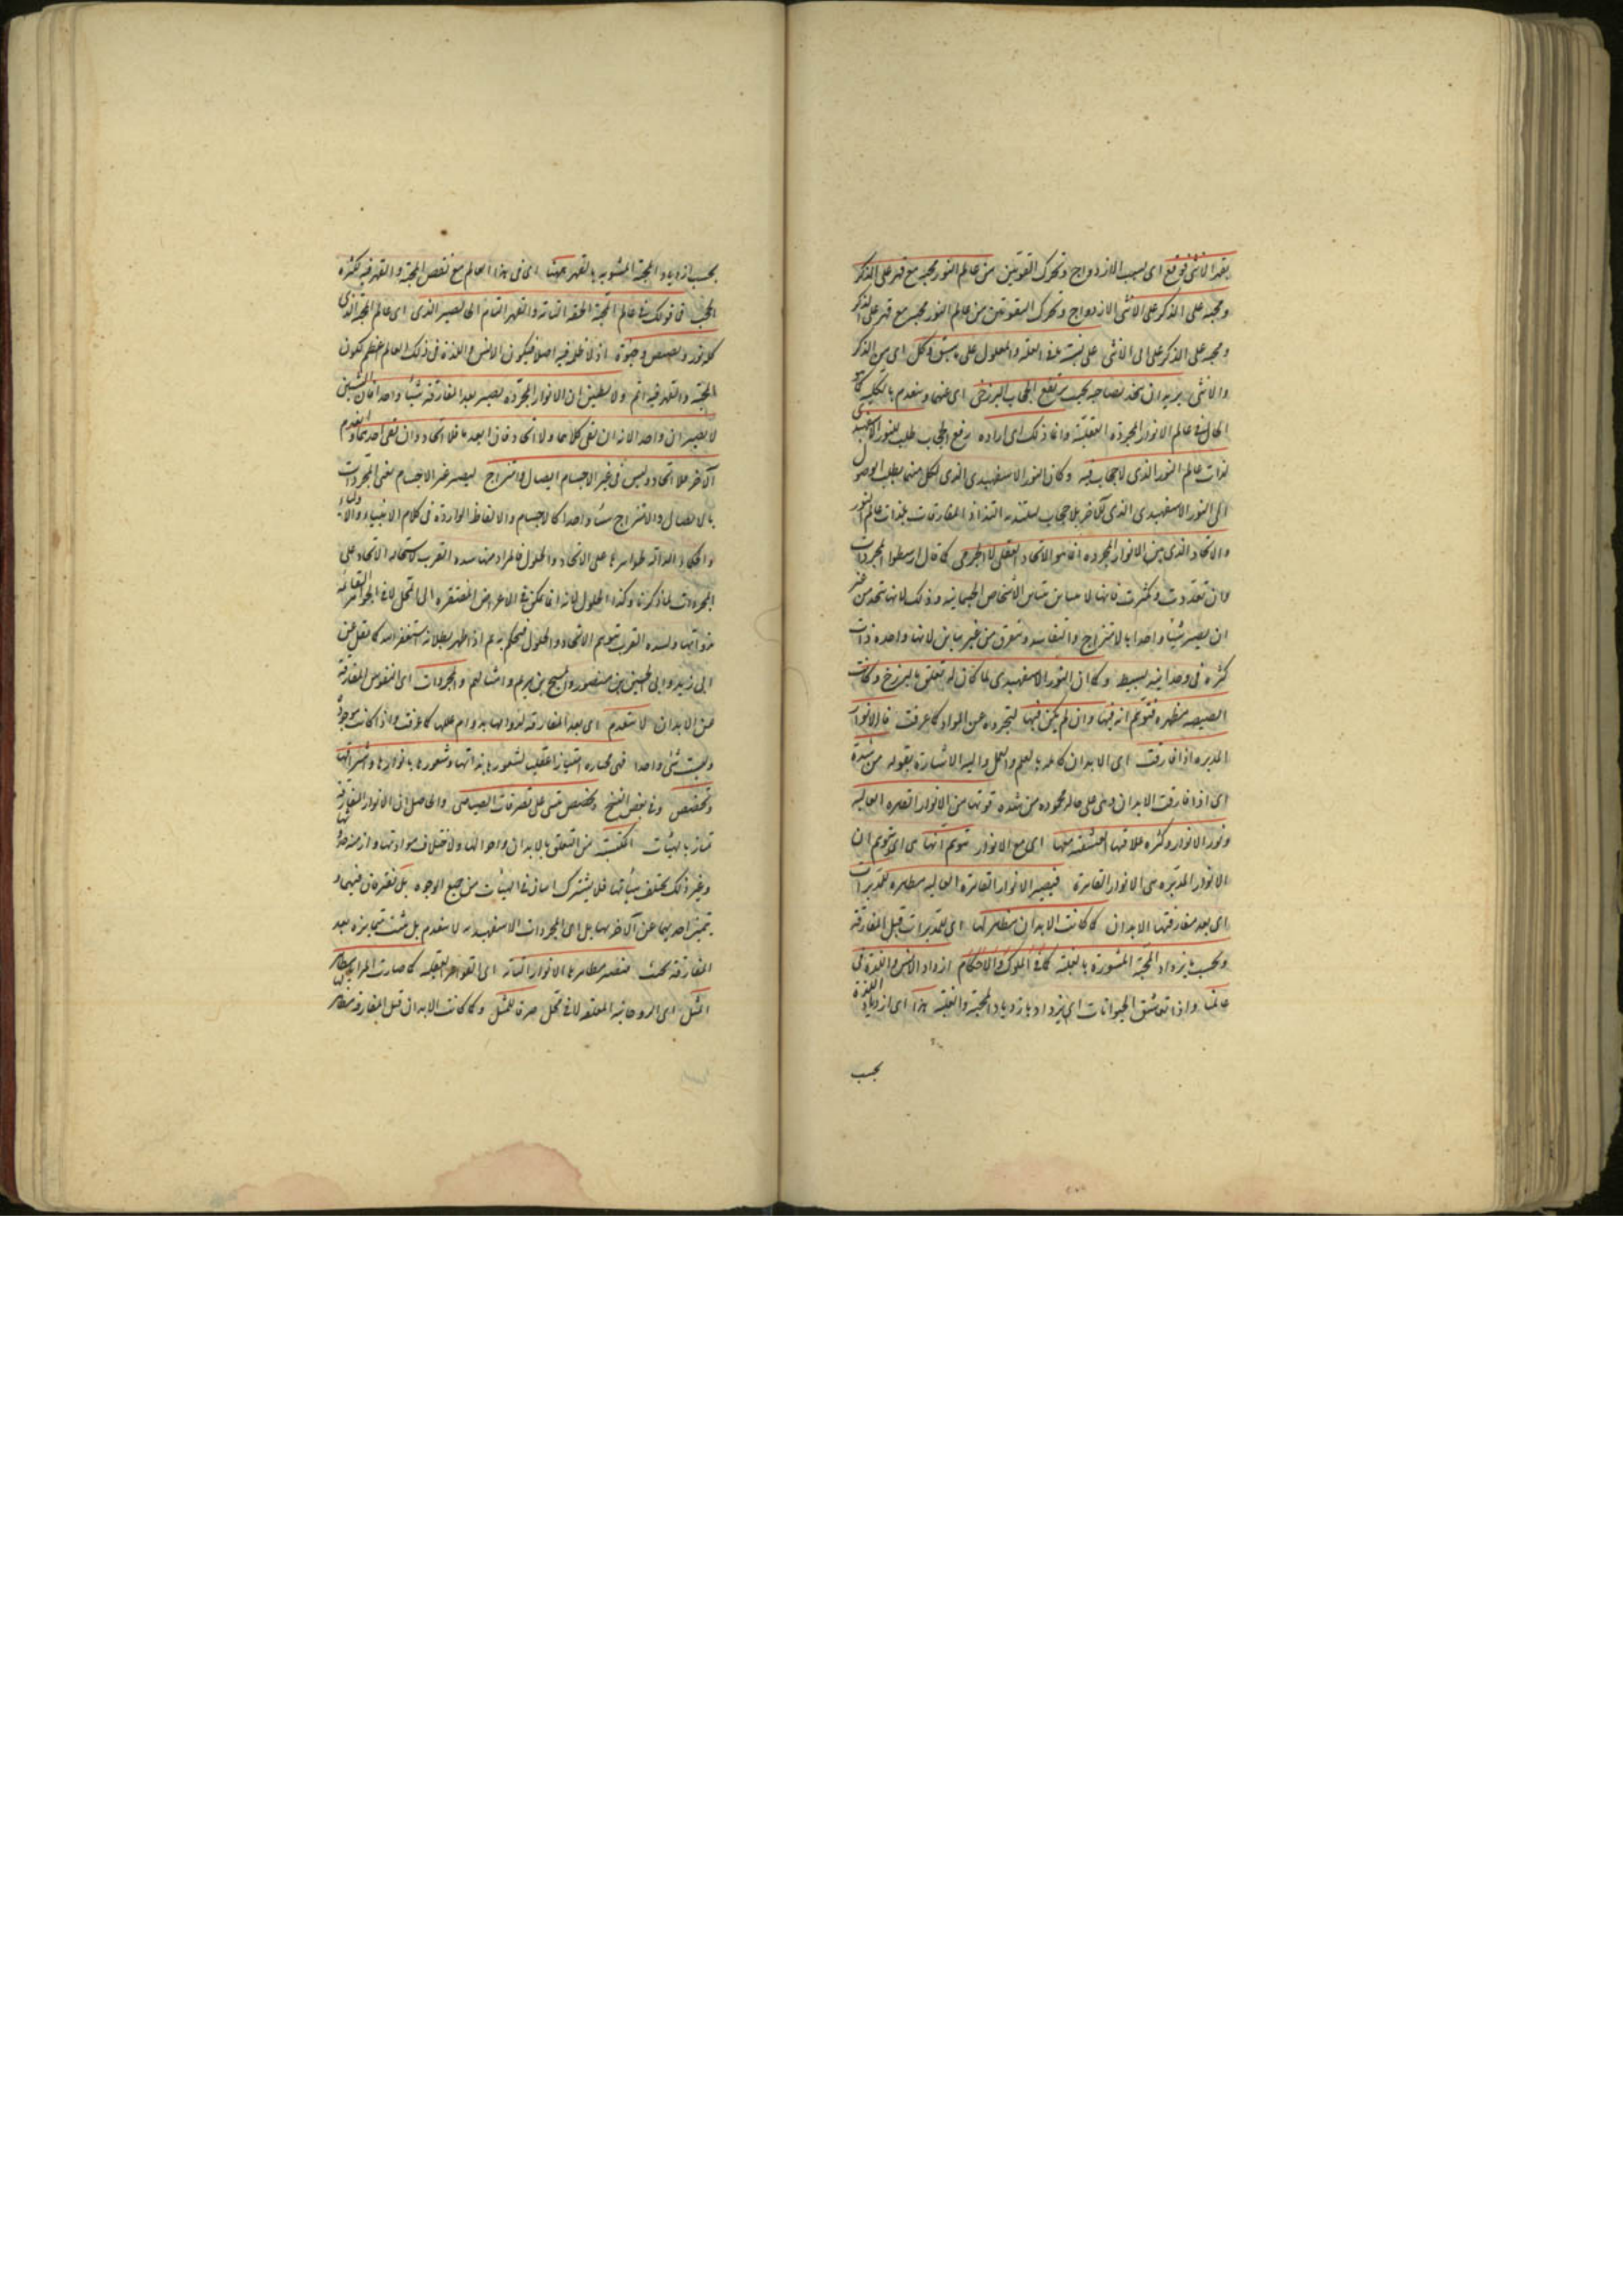 يقهر الانثى فوقع اى بسبب الازدواج وتحرك القوتين من عالم النور محبة مع قهر على الذكر
ومحبة على الذكر على الانثى الازدواج وتحرك القوتين من عالم النور محبة مع قهر على الذكر
ومحبة على الذكر على الى الانثى على نسبة فى العلة والمعلول على ما سبق وكل اى من الذكر
والانثى يريد ان يتحد بصاحبه بحيث يرتفع الحجاب البرزخى اى عنهما وينعدم بالكلية كما هو
الحال فى عالم الانوار المجردة العقلية وانما ذلك اى ارادة رفع الحجاب طلب للنور الاسفهبذى
لذات عالم النور الذى لا حجاب فيه وكان النور الاسفهبذى الذى لكل منهما يطلب الوصول
الى النور الاسفهبذى الذى للآخر بلا حجاب ليلتذ به التذاذ المفارقات بلذات عالم النور
والاتحاد الذى بين الانوار المجردة انما هو الاتحاد العقلى لا الجرمى كما قال ارسطو المجردات
وان تعددت وتكثرت فانها لا تتباين تباين الاشخاص الجسمانية وذلك لانها تتحد من غير
ان يصير شيئا واحدا بالامتزاج والتفاسد وتتفرق من غير تباين لانها واحدة ذات
كثرة فى وحدانية بسيط وكما ان النور الاسفهبذى لما كان له تعلق بالبرزخ وكانت
الصيصية مظهره فتوهم انه فيها وان لم يكن فيها لتجرده عن المواد كما عرفت فالانوار
المدبرة اذا فارقت اى الابدان كاملة بالعلم والعمل واليه الاشارة بقوله من شدة
اى اذا فارقت الابدان وهى على حالة محمودة من شدة قوتها من الانوار القاهرة العالية
ونور الانوار وكثرة علاقتها العشقية معها اى مع الانوار تتوهم انها هى اى تتوهم ان
الانوار المدبرة هى الانوار القاهرة فيصير الانوار القاهرة العالية مظاهر للمدبرات
اى بعد مفارقتها الابدان كما كانت الابدان مظاهر لها اى للمدبرات قبل المفارقة
وبحسب ما يزداد المحبة المشوبة بالغلبة كما فى الملوك والاحكام ازداد الانس واللذة فى
عالمنا وكذا تعشق الحيوانات اى يزداد بازدياد المحبة والغلبة هذا اى ازدياد اللذة
بحسب
بحسب ازدياد المحبة المشوبة بالقهر ههنا اى فى هذا العالم مع نقص المحبة والقهر فيه لكثرة
الحجب فما قولك فى عالم المحبة الحقة التامة والقهر التام الخالص الذى اى عالم المحبة الذى
كله نور وبصيص وحيوة اذ لا ظل فيه اصلا فيكون الانس واللذة فى ذلك العالم اعظم لكون
المحبة والقهر فيه اتم ولا تظنن ان الانوار المجردة تصير بعد المفارقة شيئا واحدا فان الشيئين
لا يصيران واحدا لانه ان بقى كلاهما فلا اتحاد وان انعدما فلا اتحاد وان بقى احدهما وانعدم
الآخر فلا اتحاد وليس فى غير الاجسام اتصال وامتزاج ليصير غير الاجسام يعنى المجردات
بالاتصال والامتزاج شيئا واحدا كالاجسام والالفاظ الواردة فى كلام الانبياء والاولياء
والحكماء الدالة ظواهرها على الاتحاد والحلول فالمراد منها شدة القرب لاستحالة الاتحاد على
المجردات لما ذكرنا وكذا الحلول لانه انما يمكن فى الاعراض المفتقرة الى المحل لا فى الجواهر القائمة
بذواتها ولشدة القرب يتوهم الاتحاد والحلول فيحكم به ثم اذا ظهر بطلانه يستغفر الله كما نقل عن
ابى يزيد وابى الحسين بن منصور والمسيح بن مريم وامثالهم والمجردات اى النفوس المفارقة
عن الابدان لا تنعدم اى بعد المفارقة لدوامها بدوام عللها كما عرفت واذا كانت موجودة
وليست شئ واحدا فهى ممتازة امتيازا عقليا لشعورها بذاتها وشعورها بانوارها واشراقاتها
وتخصيص وفى بعض النسخ وتخصص يبتنى على تصرفات الصياصى والحاصل ان الانوار المفارقة
تمتاز بالهيئات المكتسبة من التعلق بالابدان واحوالها ولاختلاف موادها وازمنة حدوثها
وغير ذلك يختلف هيئاتها فلا يشترك اثنان فى الهيئات من جميع الوجوه بل تفترقان فيهما و
يتميز احديهما عن الآخر بها بل اى المجردات الاسفهبذية لا تنعدم بل تثبت متمايزة بعد
المفارقة بحيث فتصير مظاهرها الانوار التامة اى القواهر العقلية كما صارت المرايا مظاهر
المثل اى الروحانية المعلقة لا فى محل ضرب للمثل وكما كانت الابدان قبل المفارقة مظاهر